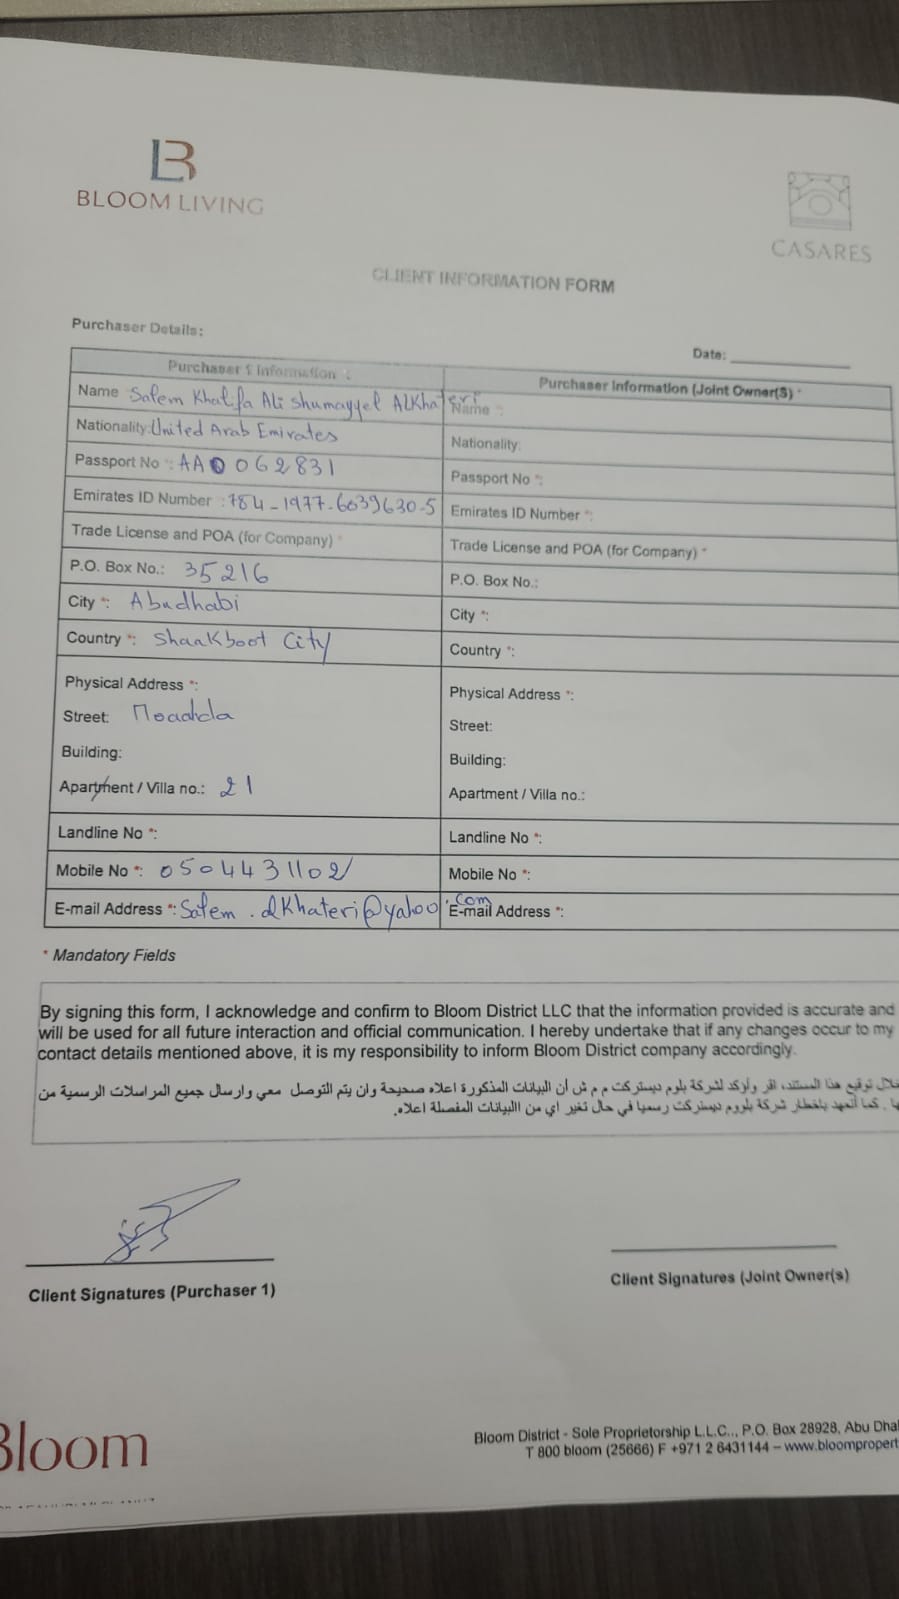 BLOOM LIVING
CASARES
CLIENT INFORMATION FORM
Purchaser Details:
Date:
Purchaser 1 Information :
Purchaser Information (Joint Owner(S) *
Name Salem Khalifa Ali Shumayyel ALKhateri
Name *:
Nationality: United Arab Emirates
Nationality:
Passport No *: AA0062831
Passport No *:
Emirates ID Number *: 784-1977-6039630-5
Emirates ID Number *:
Trade License and POA (for Company) *
Trade License and POA (for Company) *
P.O. Box No.: 35216
P.O. Box No.:
City *: Abudhabi
City *:
Country *: Shaakboot City
Country *:
Physical Address *:
Physical Address *:
Street:
Street:
Building:
Building:
Apartment / Villa no.: 21
Apartment / Villa no.:
Landline No *:
Landline No *:
Mobile No *: 0504431102
Mobile No *:
E-mail Address *: Salem.alkhateri@yahoo.com
E-mail Address *:
* Mandatory Fields
By signing this form, I acknowledge and confirm to Bloom District LLC that the information provided is accurate and
will be used for all future interaction and official communication. I hereby undertake that if any changes occur to my
contact details mentioned above, it is my responsibility to inform Bloom District company accordingly.
توقيع هذا المستند، اقر وأؤكد لشركة بلوم ديستركت م م ش أن البيانات المذكورة اعلاه صحيحة وان يتم التوصل معي وارسال جميع المراسلات الرسمية من
. كما أتعهد باخطار شركة بلووم ديستركت رسميا في حال تغير اي من االبيانات المفصلة اعلاه.
Client Signatures (Purchaser 1)
Client Signatures (Joint Owner(s)
Bloom
Bloom District - Sole Proprietorship L.L.C.., P.O. Box 28928, Abu Dha
T 800 bloom (25666) F +971 2 6431144 – www.bloompropert